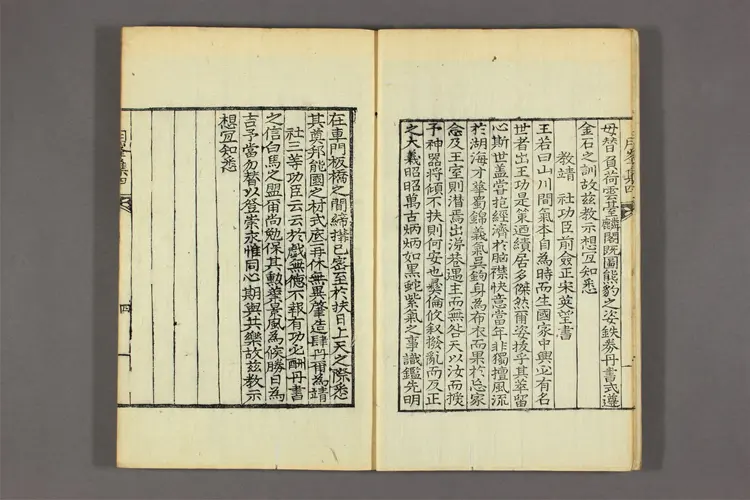 毋替負荷雲臺麟閣旣圖熊豹之姿鉄券丹書式遵
金石之訓故玆教示想宜知悉
教靖 社功臣前僉正宋英望書
王若曰山川間氣本自為時而生國家中興必有名
世者出王功是策迺績居多傑然爾姿拔乎其萃留
心斯世盖嘗抱經濟於胸襟快意當年非獨擅風流
於湖海才華蜀錦義氣吳鉤身為布衣而果於忘家
念及王室則潸焉出涕巷遇主而無咎天以汝而授
予神器將傾不扶則何安也彝倫攸叙撥亂而反正
之大義昭昭萬古炳炳如黑蛇紫氣之事識鑑先明
在車門板橋之間締搆已密至於扶日上天之際悉
其奠邦能國之材式底再休無異肇造肆丹爾為靖
社三等功臣云云於戲無德不報有功必酬丹書
之信白馬之盟爾尚勉保其勳業景風為候勝日為
吉予當勿替以答崇永惟同心期與共樂故玆教示
想宜知悉
四